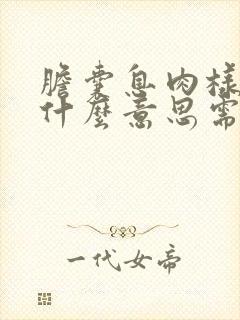 膽囊息肉樣
什麼意思需
一代女帝